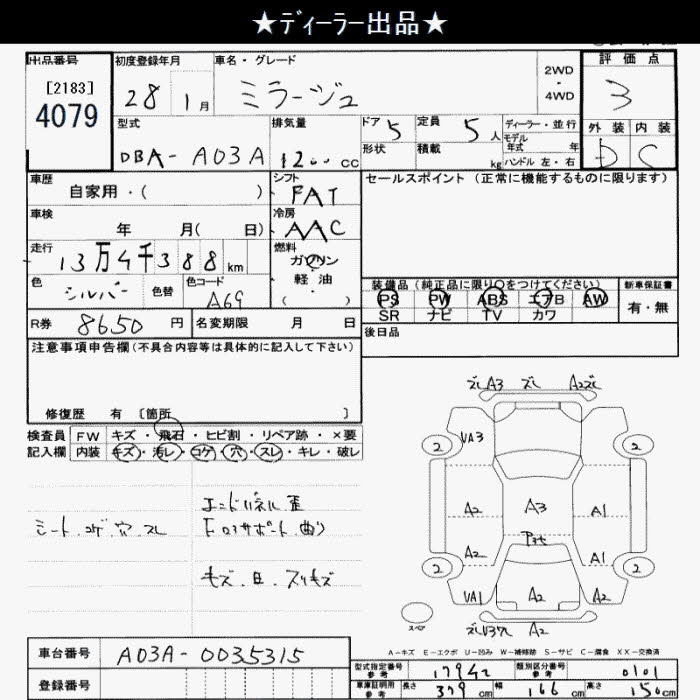 ★ディーラー出品★
出品番号
[2183]
4079
初度登録年月
28 1月
車名・グレード
ミラージュ
2WD
・
4WD
評価点
3
外装 内装
D C
型式
DBA-A03A
排気量
1200 cc
ドア 5
形状
定員 5人
積載 kg
ディーラー・並行
モデル年式 年
ハンドル 左・右
車歴
自家用・( )
シフト
FAT
セールスポイント(正常に機能するものに限ります)
車検
年 月( 日)
冷房
AAC
走行
13万4千388km
燃料
ガソリン
・
軽油
( )
色
シルバー
色替
色コード
A69
装備品(純正品に限り○をつけてください)
PS PW ABS エアB AW
SR ナビ TV カワ
新車保証書
有・無
R券 8650円
名変期限 月 日
後日品
注意事項申告欄(不具合内容等は具体的に記入して下さい)
修復歴 有 〔箇所 〕
検査員記入欄
FW キズ・飛石・ヒビ割・リペア跡・×要
内装 キズ・汚レ・コゲ・穴・スレ・キレ・破レ
エンドパネル歪
シート、コゲ、穴、スレ
Fロアサポート曲り
キズ、凹、スリキズ
ズレA3 ズレ A2ズレ
2 UA3 2
A2 A3 A1
A2 A1
2 2
UA1 A2 A2
スペア
A2
A-キズ E-エクボ U-凹み W-補修跡 S-サビ C-腐食 XX-交換済
車台番号 A03A-0035315
登録番号
型式指定番号 参考 17942
類別区分番号 参考 0101
車庫証明用 参考 長さ 379cm 幅 166cm 高さ 150cm